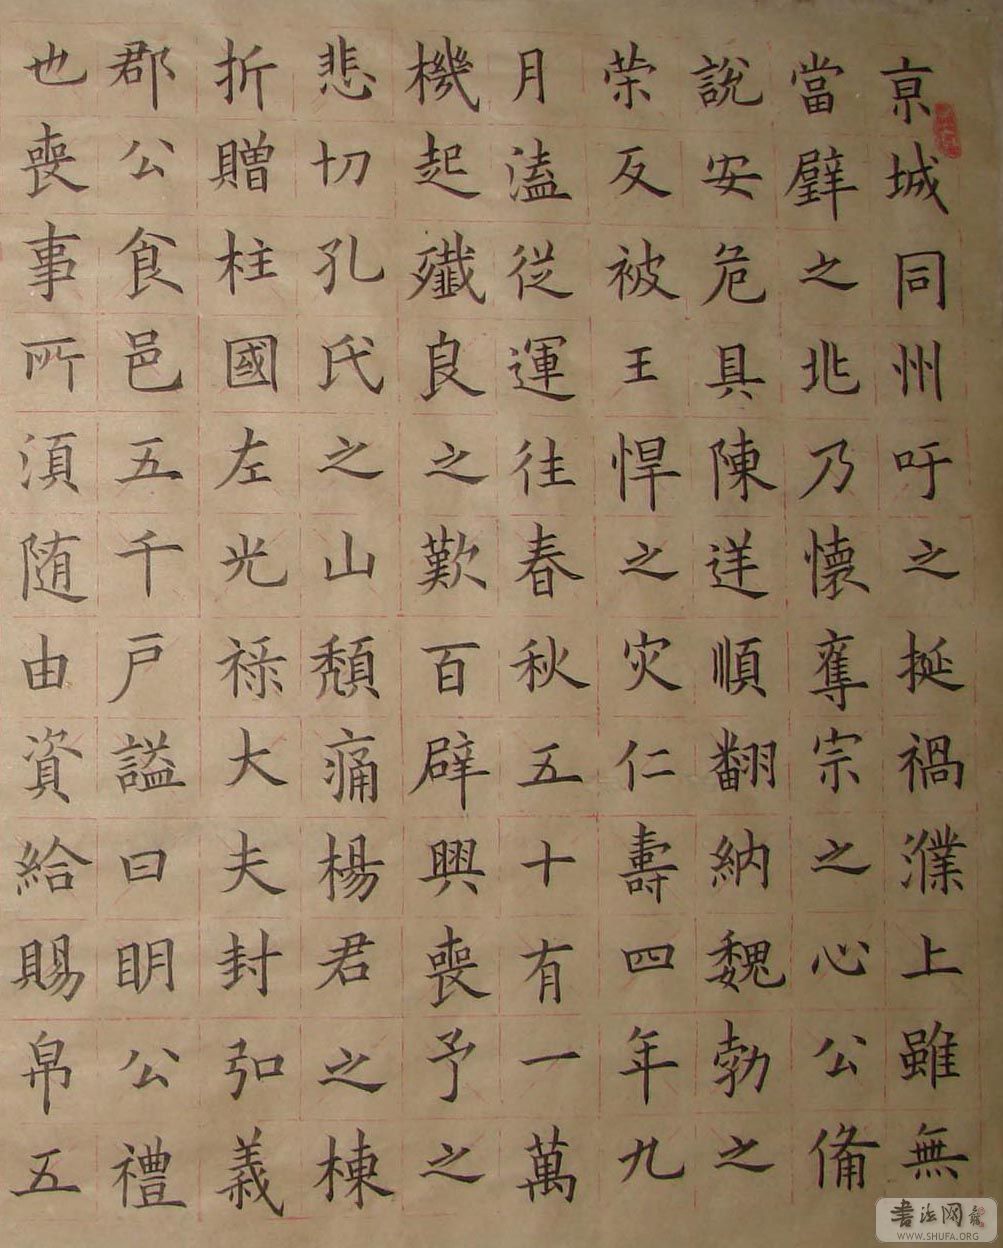 亰城同州吁之挻禍濮上雖無
當璧之兆乃懷奪宗之心公備
說安危具陳逆順翻納魏勃之
荣反被王悍之灾仁壽四年九
月溘從運往春秋五十有一萬
機起殲良之歎百辟興喪予之
悲切孔氏之山頹痛楊君之棟
折贈柱國左光祿大夫封弘義
郡公食邑五千戶謚曰明公禮
也喪事所須随由資給賜帛五
书法网
WWW.SHUFA.ORG